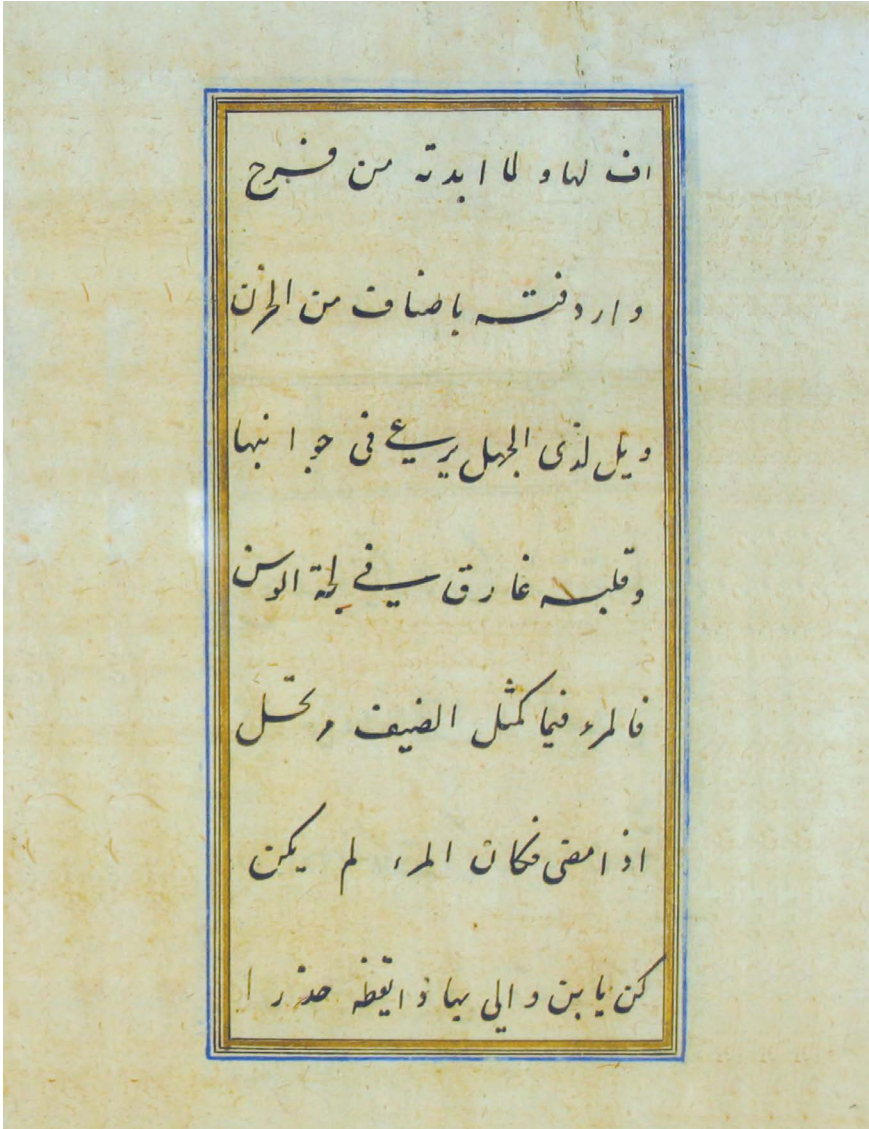 اف لها و لما ابدته من فرح
واردفته باصناف من الحزن
ويل لذى الجهل يرعى في جوانبها
وقلبه غارق في لجة الوسن
فالمرء فيها كمثل الضيف مرتحل
اذا مضى فكان المرء لم يكن
كن يا بن والى بها ذا يقظه حذرا